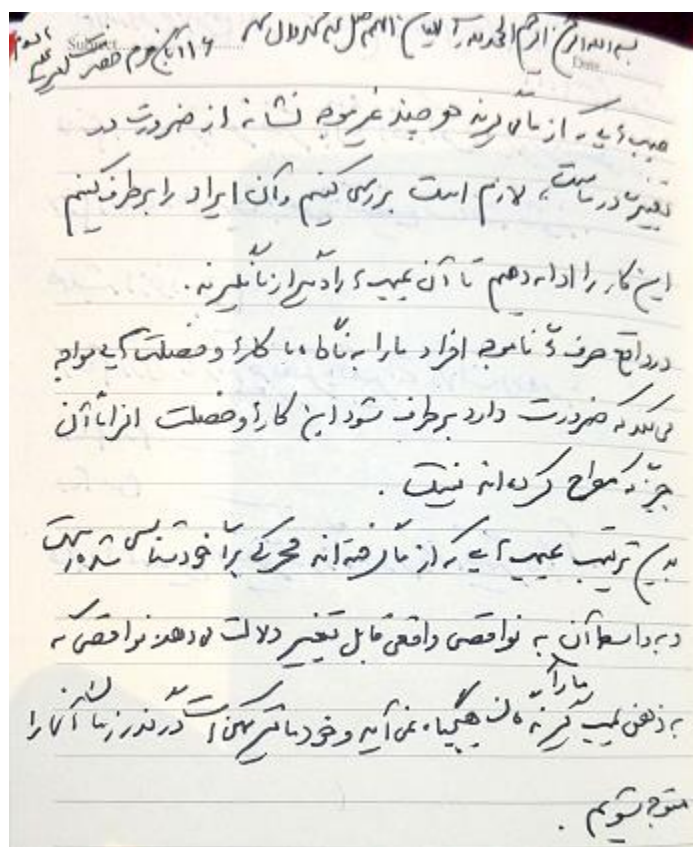 بسم الله الرحمن الرحیم الحمد لله رب العالمین اللهم صل علی محمد و آل محمد
Subject
Date
عیب‌هایی که از ما می‌گیرند هر چند غیر موجه نشانه از ضرورت
تغییرات در ماست، لازم است بررسی کنیم و آن ایراد را برطرف کنیم
این کار را ادامه دهیم تا آن عیب‌ها را دیگر از ما نگیرند.
در واقع حرف‌های ناموجه افراد ما را به نکات یا کارها و خصلت‌هایی مواجه
می‌کند که ضرورت دارد برطرف شود این کارها و خصلت الزاماً آن
چیز که مطرح کرده‌اند نیست.
بدین ترتیب عیب‌هایی که از ما گرفته‌اند محرکی برای خودشناسی شده است
و به واسطه آن به نواقصی واقعی قابل تغییر دلالت می‌دهد نواقصی که
به ذهن عیب گیرنده هیچگاه نمی‌آید و خود ما نیز ممکن است آنها را
متوجه نشویم.